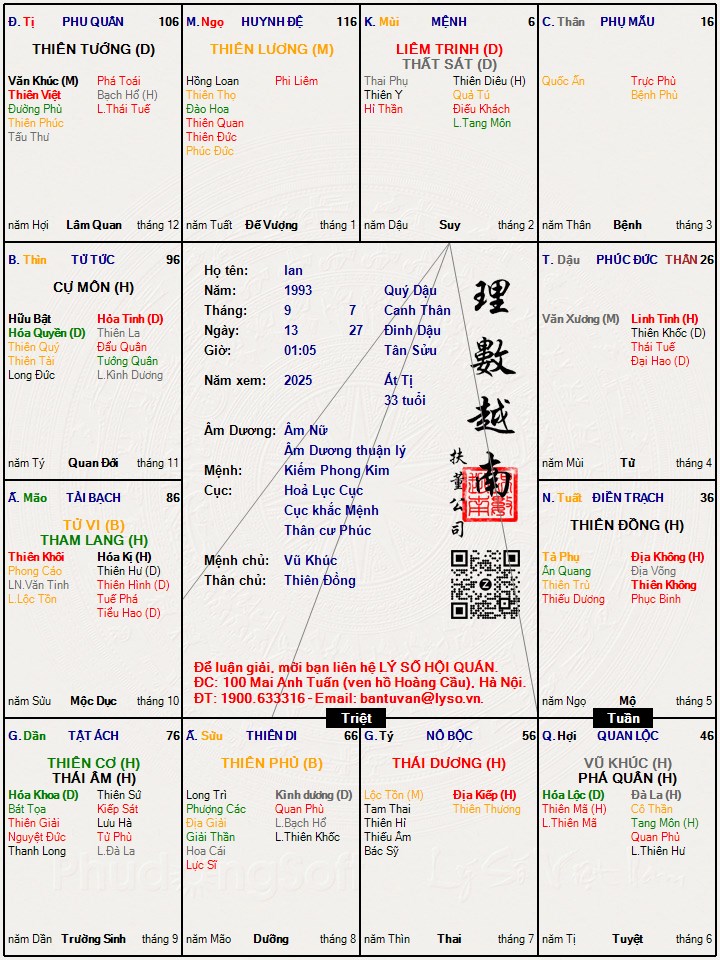 Đ. Tị PHU QUÂN 106
THIÊN TƯỚNG (D)
Văn Khúc (M) Phá Toái
Thiên Việt Bạch Hổ (H)
Đường Phù L.Thái Tuế
Thiên Phúc
Tấu Thư
năm Hợi Lâm Quan tháng 12
M. Ngọ HUYNH ĐỆ 116
THIÊN LƯƠNG (M)
Hồng Loan Phi Liêm
Thiên Thọ
Đào Hoa
Thiên Quan
Thiên Đức
Phúc Đức
năm Tuất Đế Vượng tháng 1
K. Mùi MỆNH 6
LIÊM TRINH (D)
THẤT SÁT (D)
Thai Phụ Thiên Diêu (H)
Thiên Y Quả Tú
Hỉ Thần Điếu Khách
L.Tang Môn
năm Dậu Suy tháng 2
C. Thân PHỤ MẪU 16
Quốc Ấn Trực Phù
Bệnh Phù
năm Thân Bệnh tháng 3
B. Thìn TỬ TỨC 96
CỰ MÔN (H)
Hữu Bật Hỏa Tinh (D)
Hóa Quyền (D) Thiên La
Thiên Quý Đẩu Quân
Thiên Tài Tướng Quân
Long Đức L.Kình Dương
năm Tý Quan Đới tháng 11
Họ tên: lan
Năm: 1993 Quý Dậu
Tháng: 9 7 Canh Thân
Ngày: 13 27 Đinh Dậu
Giờ: 01:05 Tân Sửu
Năm xem: 2025 Ất Tị
33 tuổi
Âm Dương: Âm Nữ
Âm Dương thuận lý
Mệnh: Kiếm Phong Kim
Cục: Hoả Lục Cục
Cục khắc Mệnh
Thân cư Phúc
Mệnh chủ: Vũ Khúc
Thân chủ: Thiên Đồng
理數越南
扶董公司
Để luận giải, mời bạn liên hệ LÝ SỐ HỘI QUÁN.
ĐC: 100 Mai Anh Tuấn (ven hồ Hoàng Cầu), Hà Nội.
ĐT: 1900.633316 - Email: bantuvan@lyso.vn.
T. Dậu PHÚC ĐỨC THÂN 26
Văn Xương (M) Linh Tinh (H)
Thiên Khốc (D)
Thái Tuế
Đại Hao (D)
năm Mùi Tử tháng 4
Ấ. Mão TÀI BẠCH 86
TỬ VI (B)
THAM LANG (H)
Thiên Khôi Hóa Kị (H)
Phong Cáo Thiên Hư (D)
LN.Văn Tinh Thiên Hình (D)
L.Lộc Tồn Tuế Phá
Tiểu Hao (D)
năm Sửu Mộc Dục tháng 10
N. Tuất ĐIỀN TRẠCH 36
THIÊN ĐỒNG (H)
Tả Phụ Địa Không (H)
Ân Quang Địa Võng
Thiên Trù Thiên Không
Thiếu Dương Phục Binh
năm Ngọ Mộ tháng 5
Triệt
Tuần
G. Dần TẬT ÁCH 76
THIÊN CƠ (H)
THÁI ÂM (H)
Hóa Khoa (D) Thiên Sứ
Bát Tọa Kiếp Sát
Thiên Giải Lưu Hà
Nguyệt Đức Tử Phù
Thanh Long L.Đà La
năm Dần Trường Sinh tháng 9
Ấ. Sửu THIÊN DI 66
THIÊN PHỦ (B)
Long Trì Kình dương (D)
Phượng Các Quan Phù
Địa Giải L.Bạch Hổ
Giải Thần L.Thiên Khốc
Hoa Cái
Lực Sĩ
năm Mão Dưỡng tháng 8
G. Tý NÔ BỘC 56
THÁI DƯƠNG (H)
Lộc Tồn (M) Địa Kiếp (H)
Tam Thai Thiên Thương
Thiên Hỉ
Thiếu Âm
Bác Sỹ
năm Thìn Thai tháng 7
Q. Hợi QUAN LỘC 46
VŨ KHÚC (H)
PHÁ QUÂN (H)
Hóa Lộc (D) Đà La (H)
Thiên Mã (H) Cô Thần
L.Thiên Mã Tang Môn (H)
Quan Phủ
L.Thiên Hư
năm Tị Tuyệt tháng 6